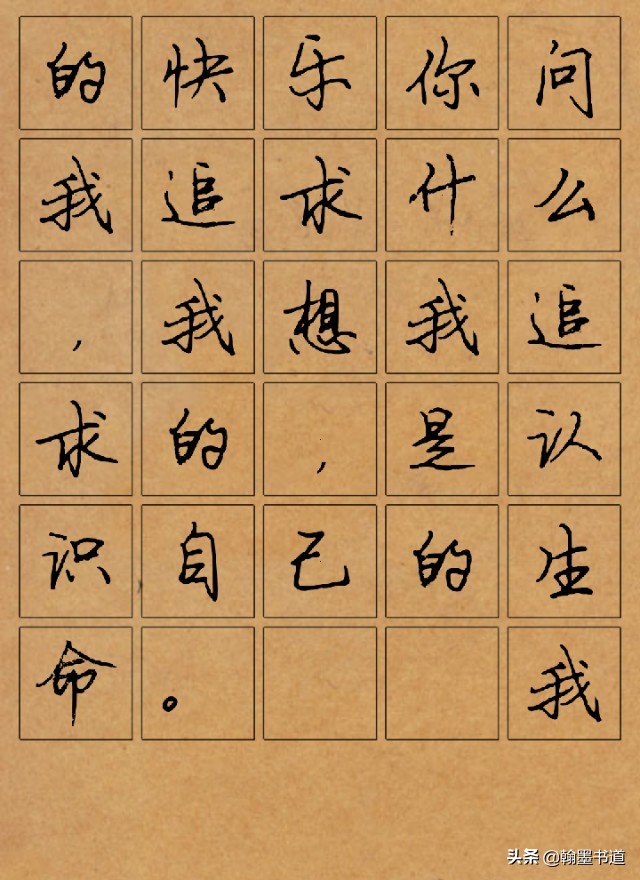 的快乐你问
我追求什么
，我想我追
求的，是认
识自己的生
命。我
头条 @翰墨书道